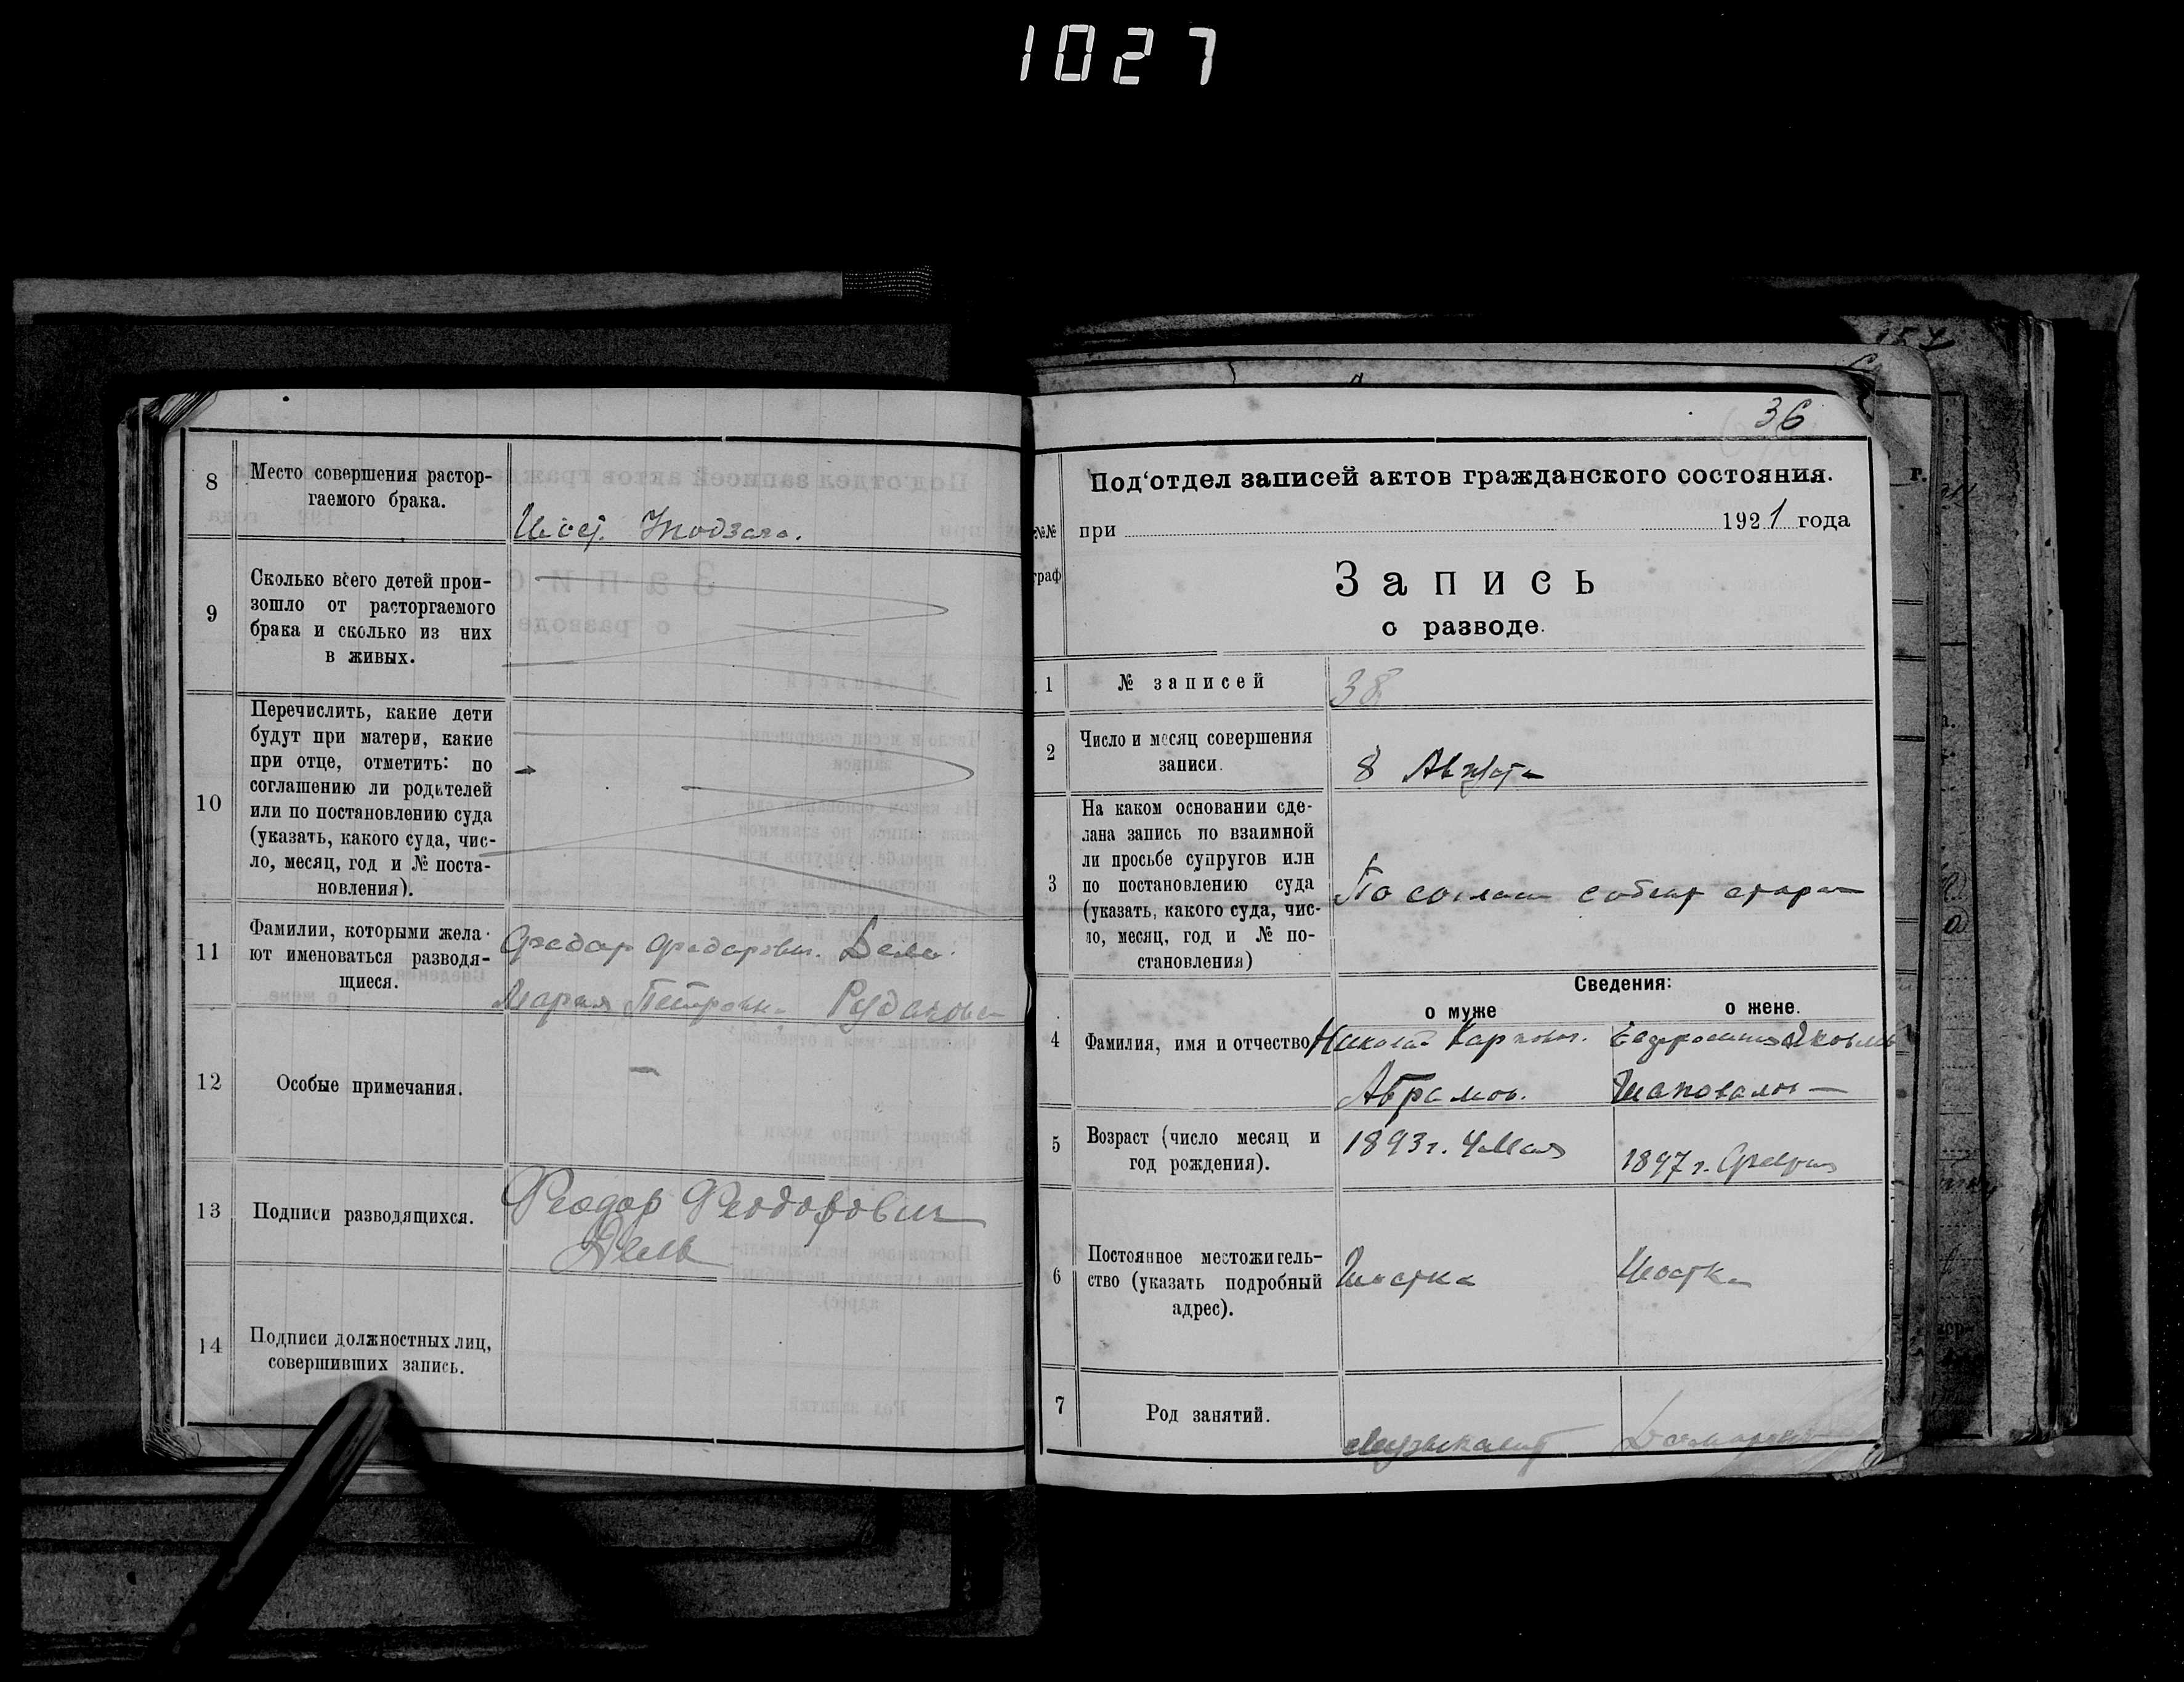 1027
8
Место совершения растор-
гаемого брака.
9
Сколько всего детей прои-
зошло от расторгаемого
брака и сколько из них
в живых.
10
Перечислить, какие дети
будут при матери, какие
при отце, отметить: по
соглашению ли родителей
или по постановлению суда
(указать, какого суда, чис-
ло, месяц, год и № поста-
новления).
11
Фамилии, которыми жела-
ют именоваться разводя-
щиеся.
Федор Федорович
Мария Петровн
12
Особые примечания.
—
13
Подписи разводящихся.
Феодор Феодорович
Дель
14
Подписи должностных лиц,
совершивших запись.
36
№№
граф
Под‘отдел записей актов гражданского состояния.
при 1921 года
Запись
о разводе.
1
№ записей
38
2
Число и месяц совершения
записи.
8 Августа
3
На каком основании сде-
лана запись по взаимной
ли просьбе супругов или
по постановлению суда
(указать, какого суда, чис-
ло, месяц, год и № по-
становления)
По соглаш
Сведения:
о муже
о жене.
4
Фамилия, имя и отчество
Николай Карпович.
Абрамов.
Шаповалов
5
Возраст (число месяц и
год рождения).
1893 г. 4 Мая
1897 г.
6
Постоянное местожитель-
ство (указать подробный
адрес).
Шостка
Шостка
7
Род занятий.
Музыкант